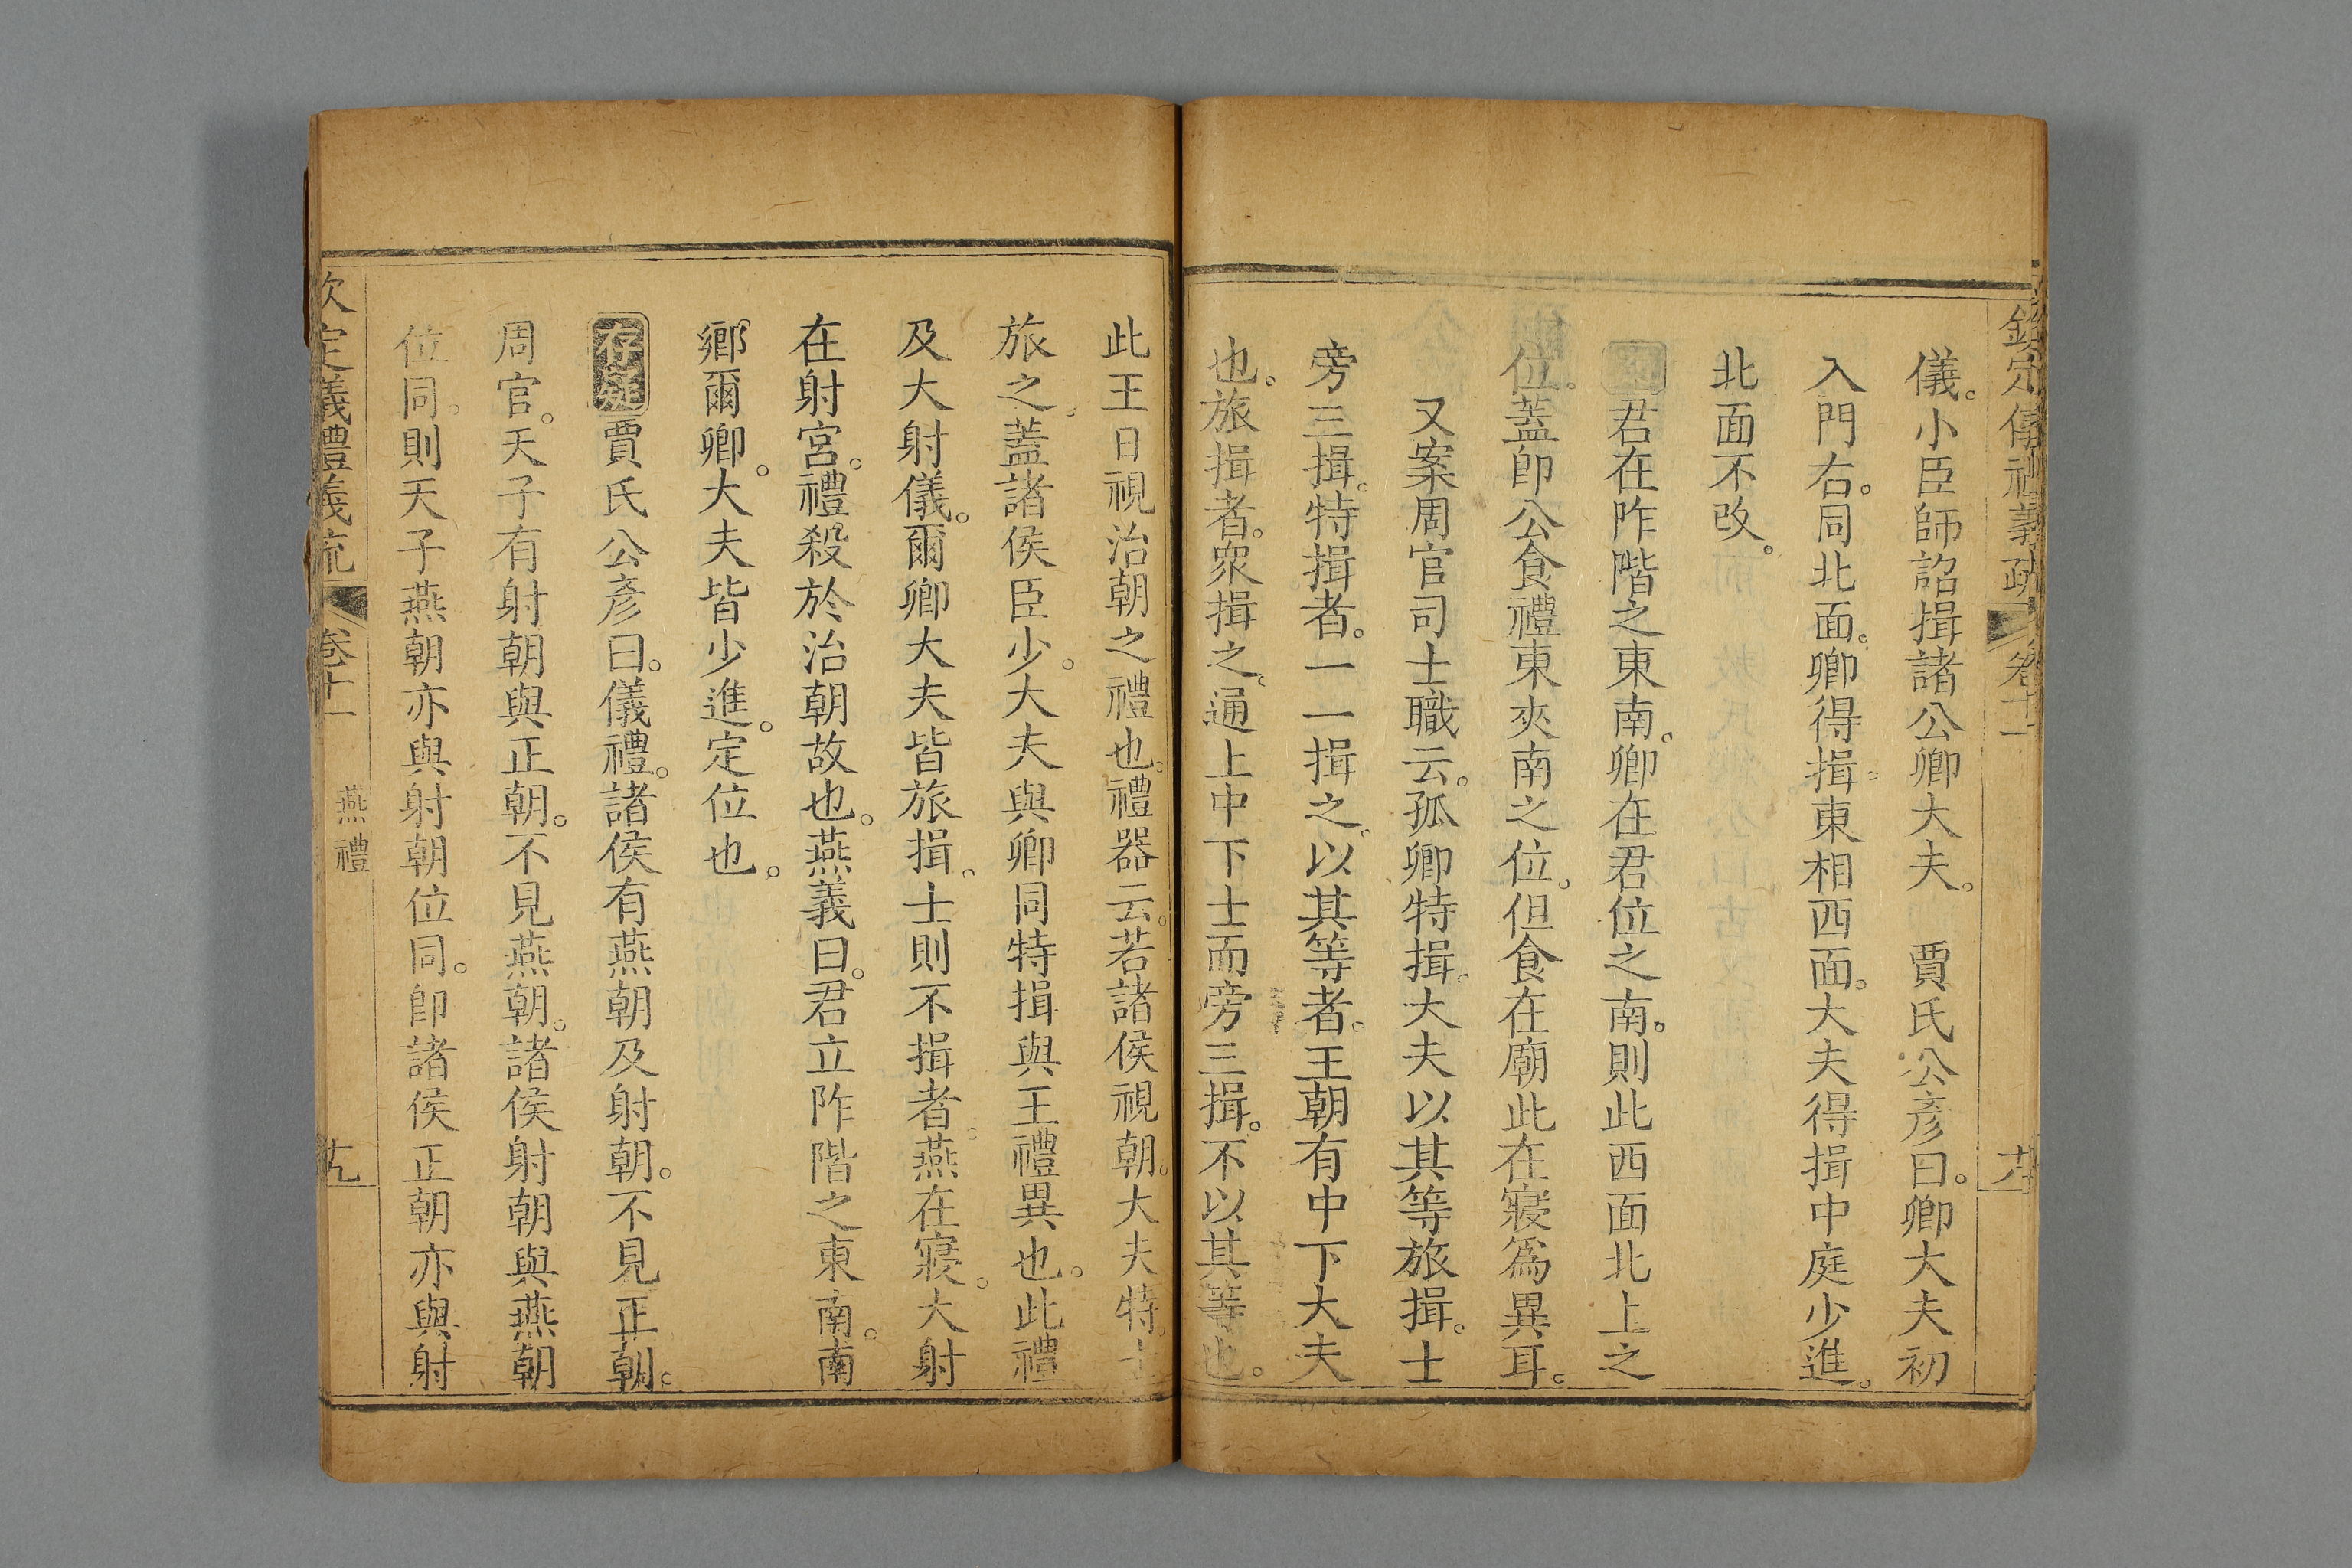 欽定儀禮義疏 卷十一
儀。小臣師詔揖諸公卿大夫。 賈氏公彥曰。卿大夫初
入門右。同北面。卿得揖。東相西面。大夫得揖中庭少進。
北面不改。
君在阼階之東南。卿在君位之南。則此西面北上之
位。蓋卽公食禮東夾南之位。但食在廟此在寢爲異耳。
又案周官司士職云。孤卿特揖。大夫以其等旅揖。士
旁三揖。特揖者。一一揖之。以其等者。王朝有中下大夫
也。旅揖者。衆揖之。通上中下士而旁三揖。不以其等也。
此王日視治朝之禮也。禮器云。若諸侯視朝。大夫特。士
旅之。蓋諸侯臣少。大夫與卿同特揖與王禮異也。此禮
及大射儀。爾卿大夫皆旅揖。士則不揖者。燕在寢。大射
在射宮。禮殺於治朝故也。燕義曰。君立阼階之東南。南
鄉爾卿。大夫皆少進。定位也。
存疑 賈氏公彥曰。儀禮。諸侯有燕朝及射朝。不見正朝。
周官。天子有射朝與正朝。不見燕朝。諸侯射朝與燕朝
位同。則天子燕朝亦與射朝位同。卽諸侯正朝亦與射
欽定儀禮義疏 卷十一 燕禮 十九